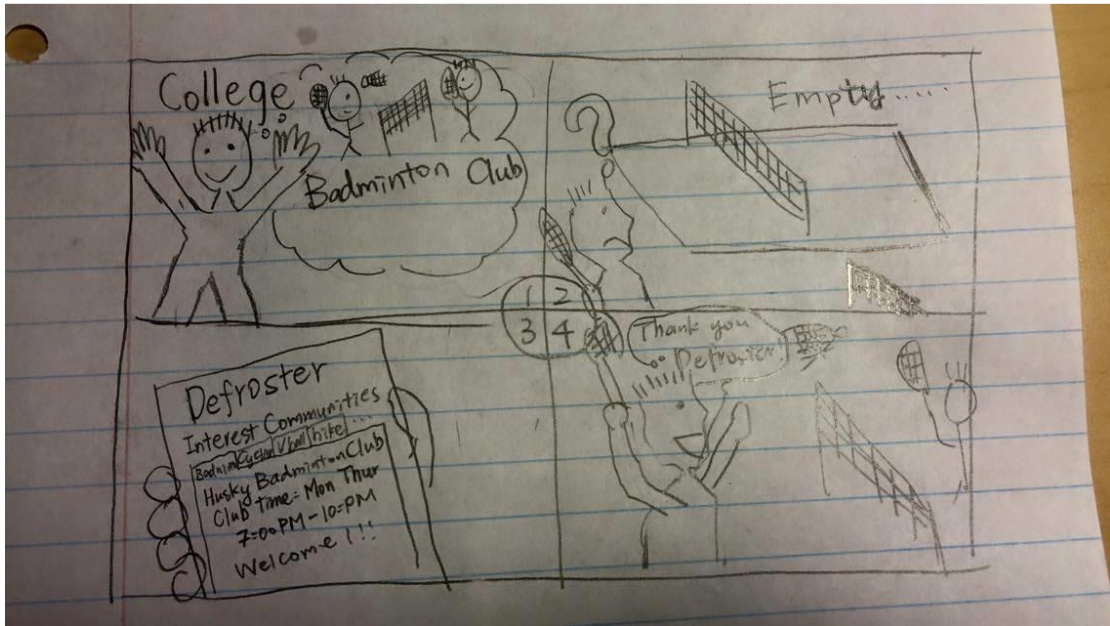 College
Badminton Club
?
Empty.....
1 2
3 4
Defroster
Interest Communities
Badmin Cycling Vball hike ...
Husky Badminton Club
Club Time: Mon Thur
7:00PM-10:PM
Welcome!!!
Thank you
Defroster!